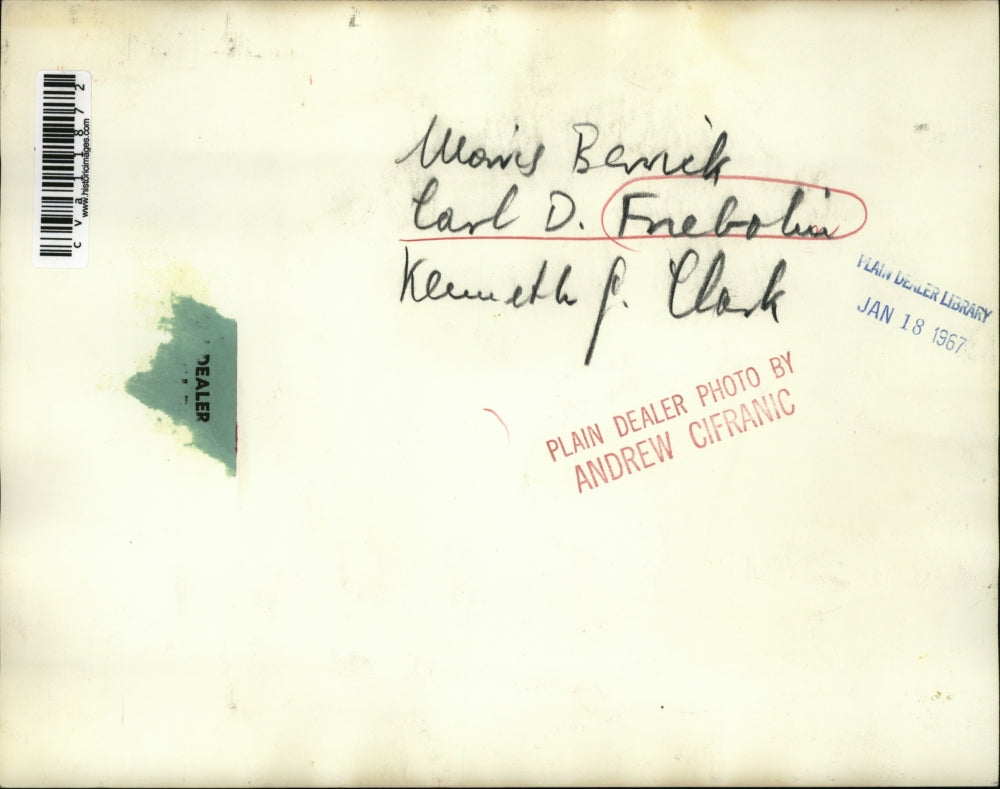 Morris Berrick
Carl D. Friebolin
Kenneth J. Clark
PLAIN DEALER LIBRARY
JAN 18 1967
PLAIN DEALER PHOTO BY
ANDREW CIFRANIC
DEALER
www.historicimages.com
cva11872